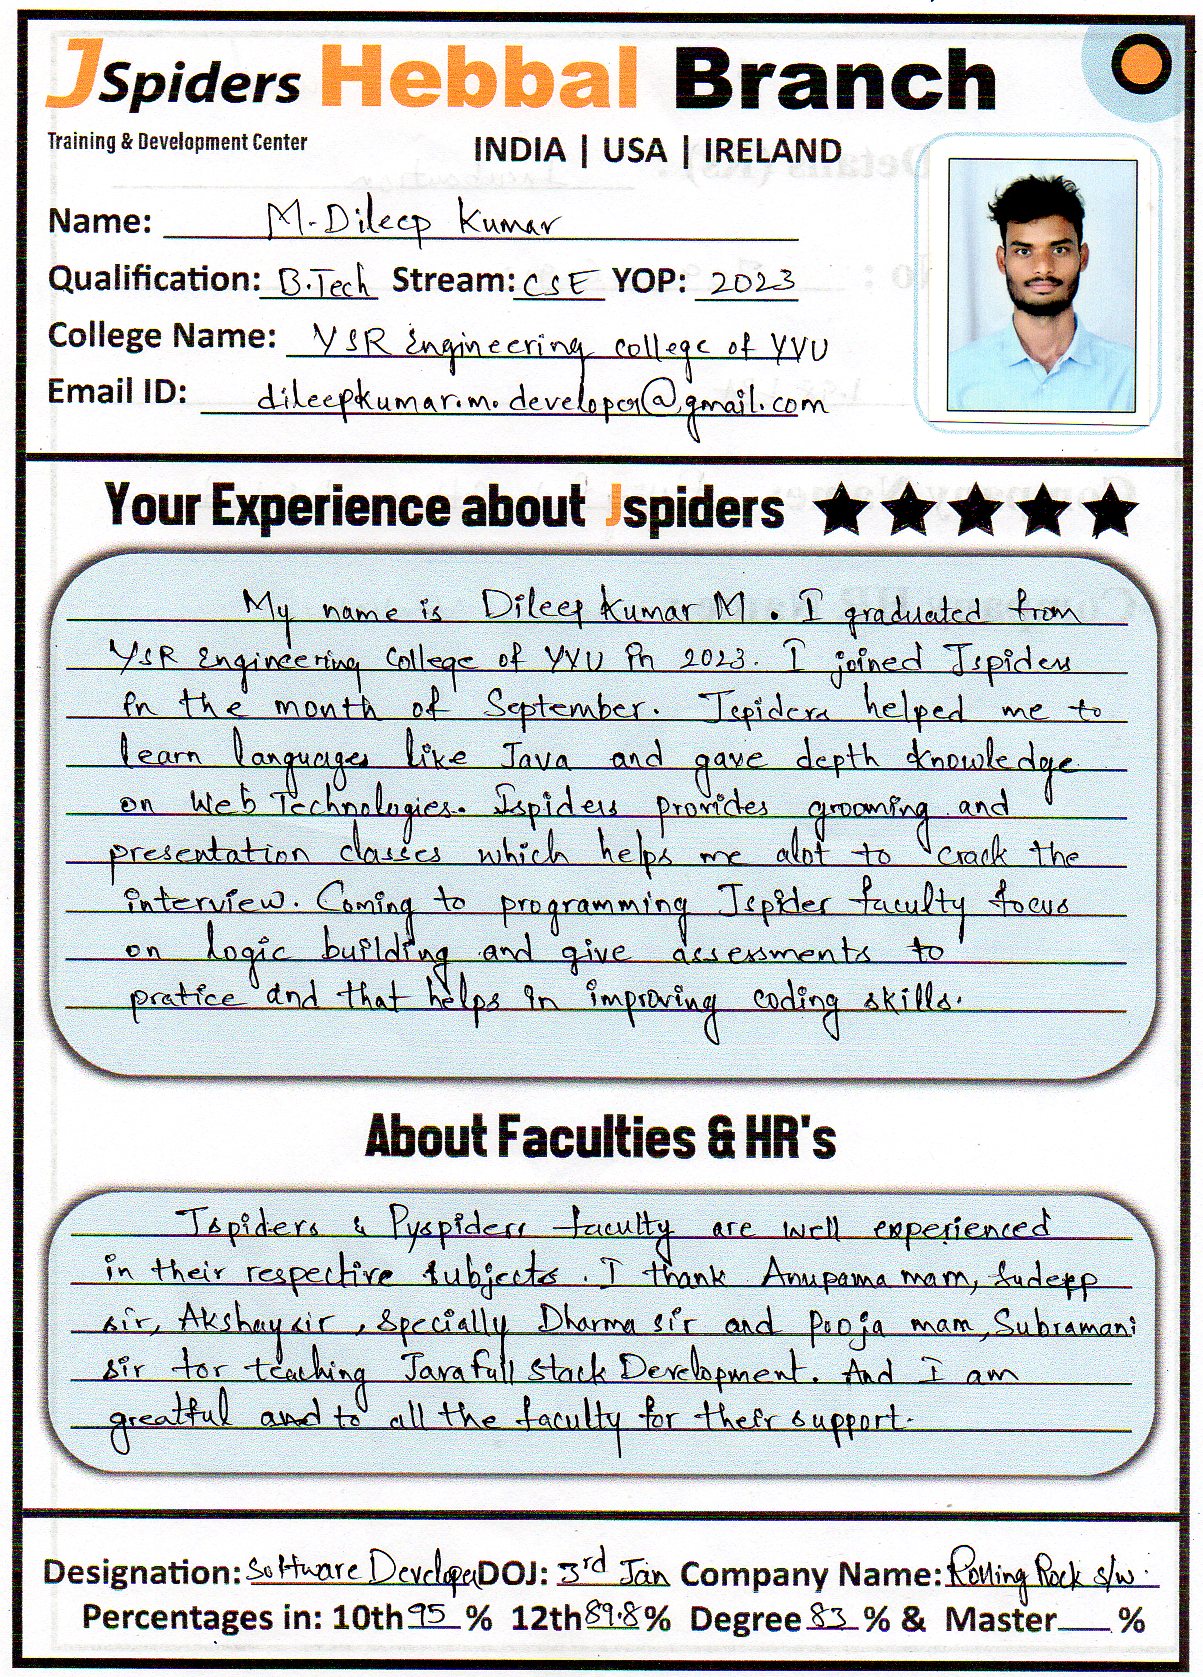 JSpiders Hebbal Branch
Training & Development Center
INDIA | USA | IRELAND
Name: M. Dileep Kumar
Qualification: B.Tech Stream: CSE YOP: 2023
College Name: YSR Engineering college of YVU
Email ID: dileepkumar.m.developer@gmail.com
Your Experience about Jspiders
My name is Dileep Kumar M. I graduated from
YSR Engineering College of YVU in 2023. I joined Jspiders
in the month of September. Jspiders helped me to
learn languages like Java and gave depth knowledge
on Web Technologies. Jspiders provides grooming and
presentation classes which helps me alot to crack the
interview. Coming to programming Jspider faculty focus
on logic building and give assessments to
pratice and that helps in improving coding skills.
About Faculties & HR's
Jspiders & Pyspiders faculty are well experienced
in their respective subjects. I thank Anupama mam, Sudeep
sir, Akshay sir, specially Dharma sir and Pooja mam, Subramani
sir for teaching Java full stack Development. And I am
greatful and to all the faculty for their support.
Designation: Software Developer DOJ: 3rd Jan Company Name: Rolling Rock s/w.
Percentages in: 10th 95 % 12th 89.8 % Degree 83 % & Master %